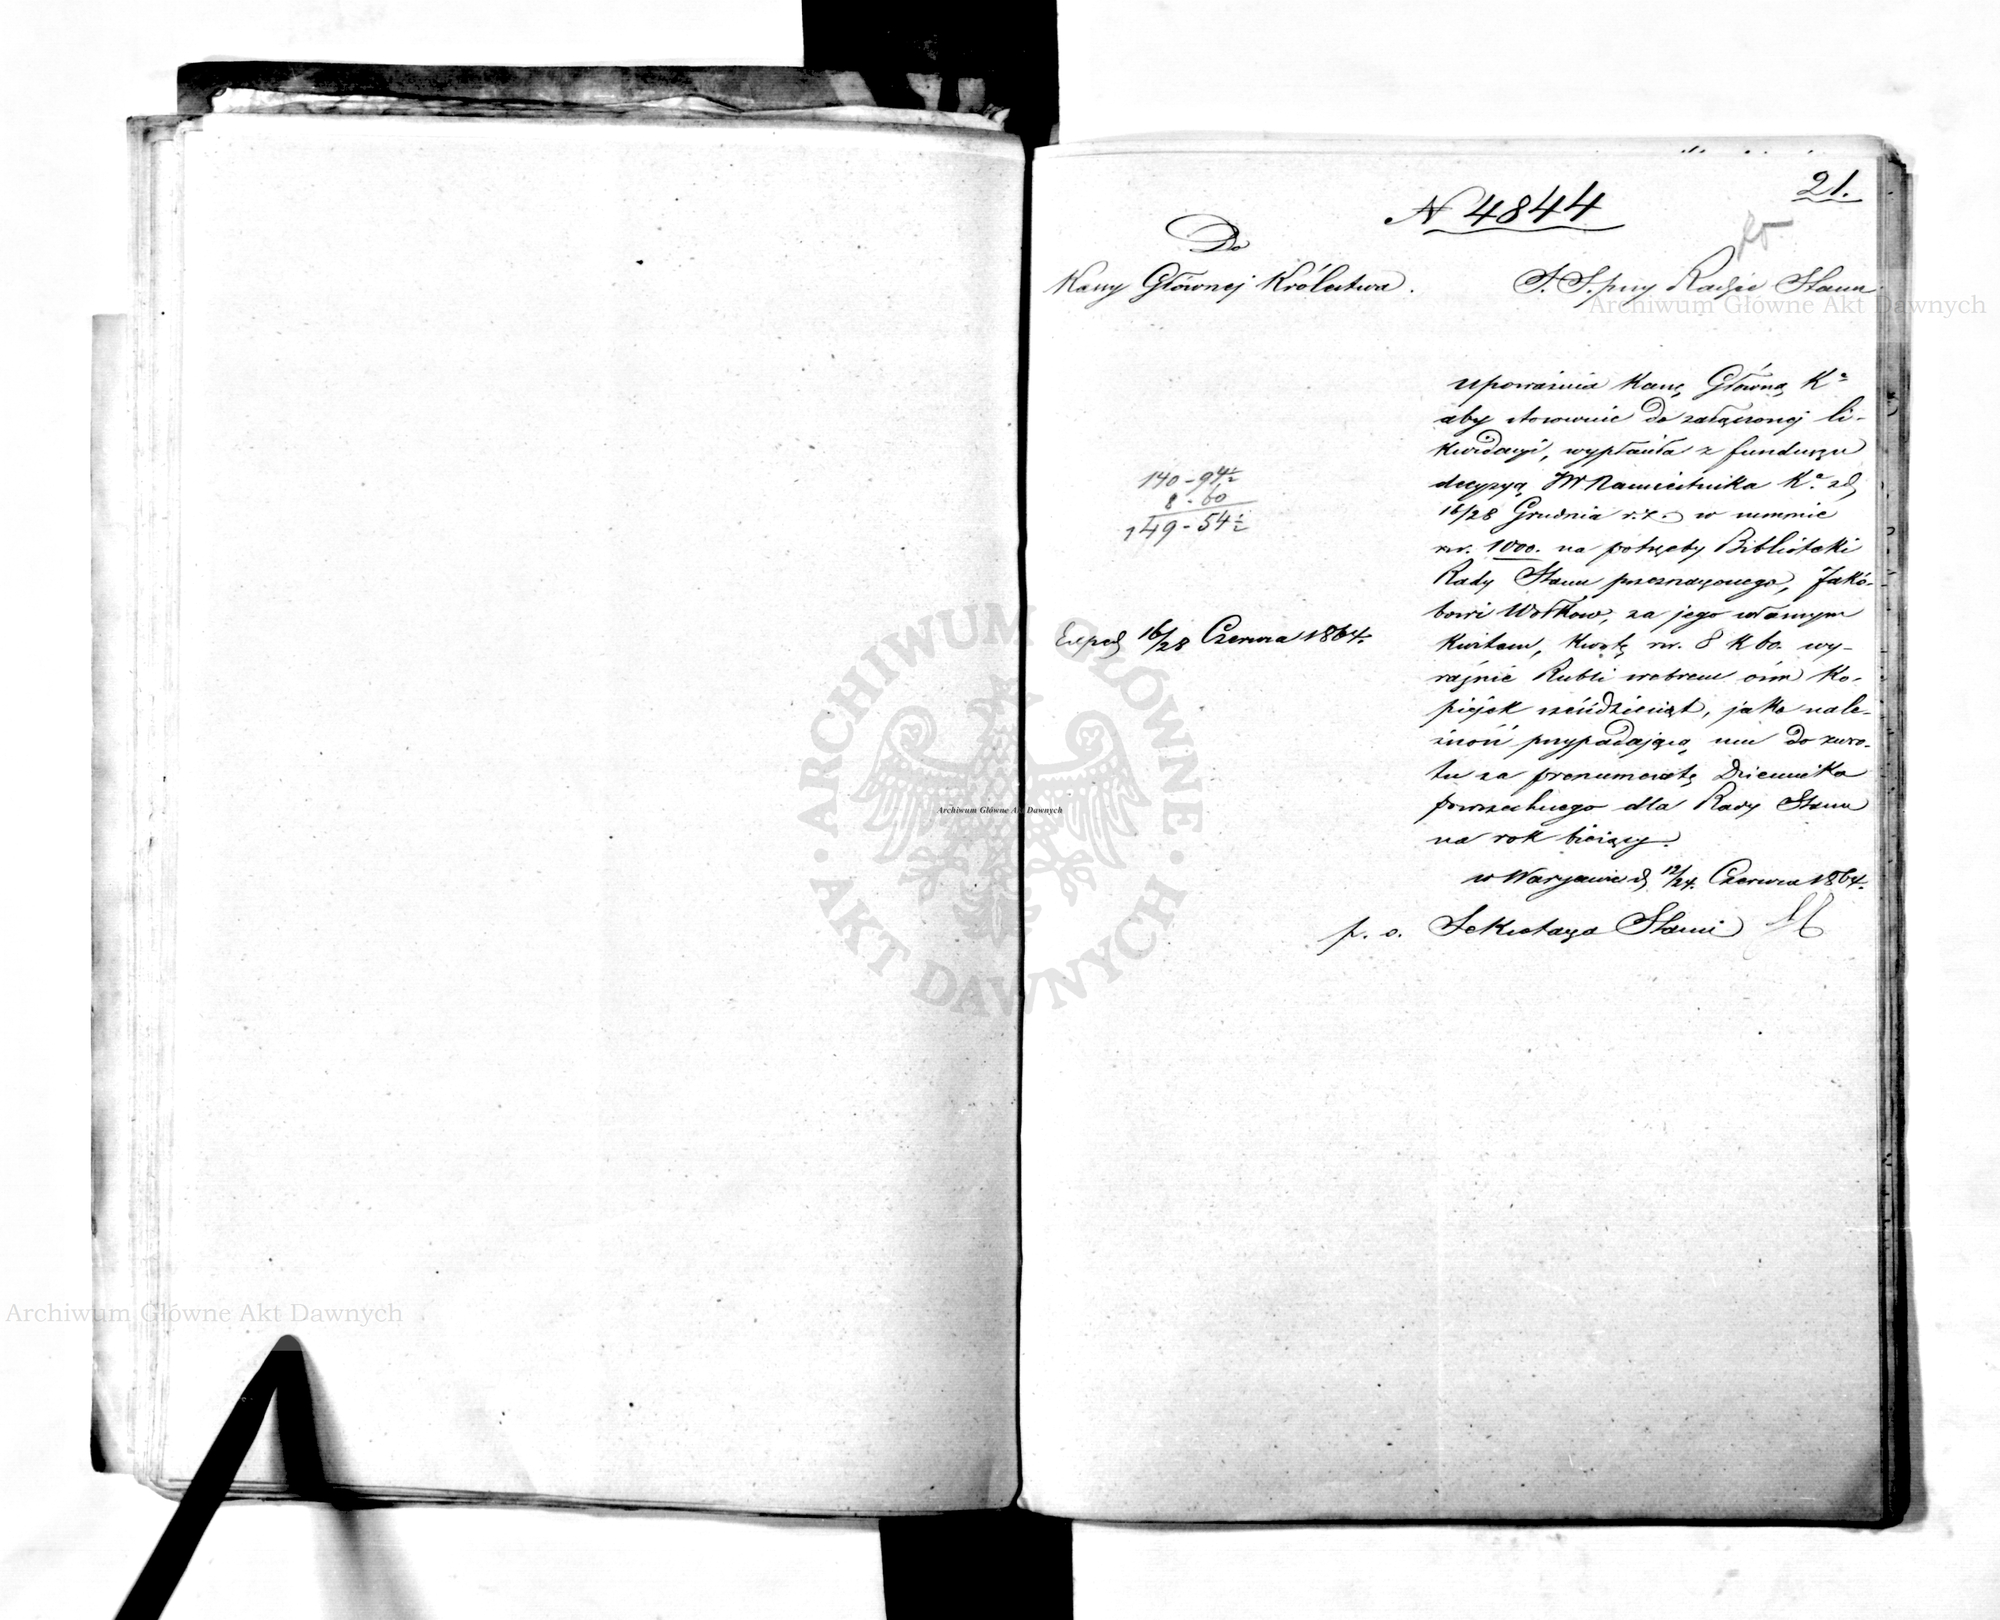 21.
N 4844
Do
Kassy Głównej Królestwa.
S. S. przy Radzie Stanu
upoważnia Kassę Główną Kᵃ
aby stosownie do załączonej li-
kwidacyi, wypłaciła z funduszu
decyzyą JW Namiestnika Kᵃ z d.
16/28 Grudnia r. z. w summie
rsr. 1000. na potrzeby Biblioteki
Rady Stanu przeznaczonego, Jakó-
bowi Wołkow, za jego własnym
kwitem, kwotę rsr. 8 k 60. wy-
raźnie Rubli srebrem ośm ko-
piejek sześćdziesiąt, jako nale-
żność przypadającą mu do zwro-
tu za prenumeratę Dziennika
powszechnego dla Rady Stanu
na rok bieżący.
w Warszawie d. 12/24. Czerwca 1864.
p. o. Sekretarza Stanu
140-94½
8-60
149-54½
Exped. 16/28 Czerwca 1864.
Archiwum Główne Akt Dawnych
ARCHIWUM GŁÓWNE
AKT DAWNYCH
Archiwum Główne Akt Dawnych
Archiwum Główne Akt Dawnych